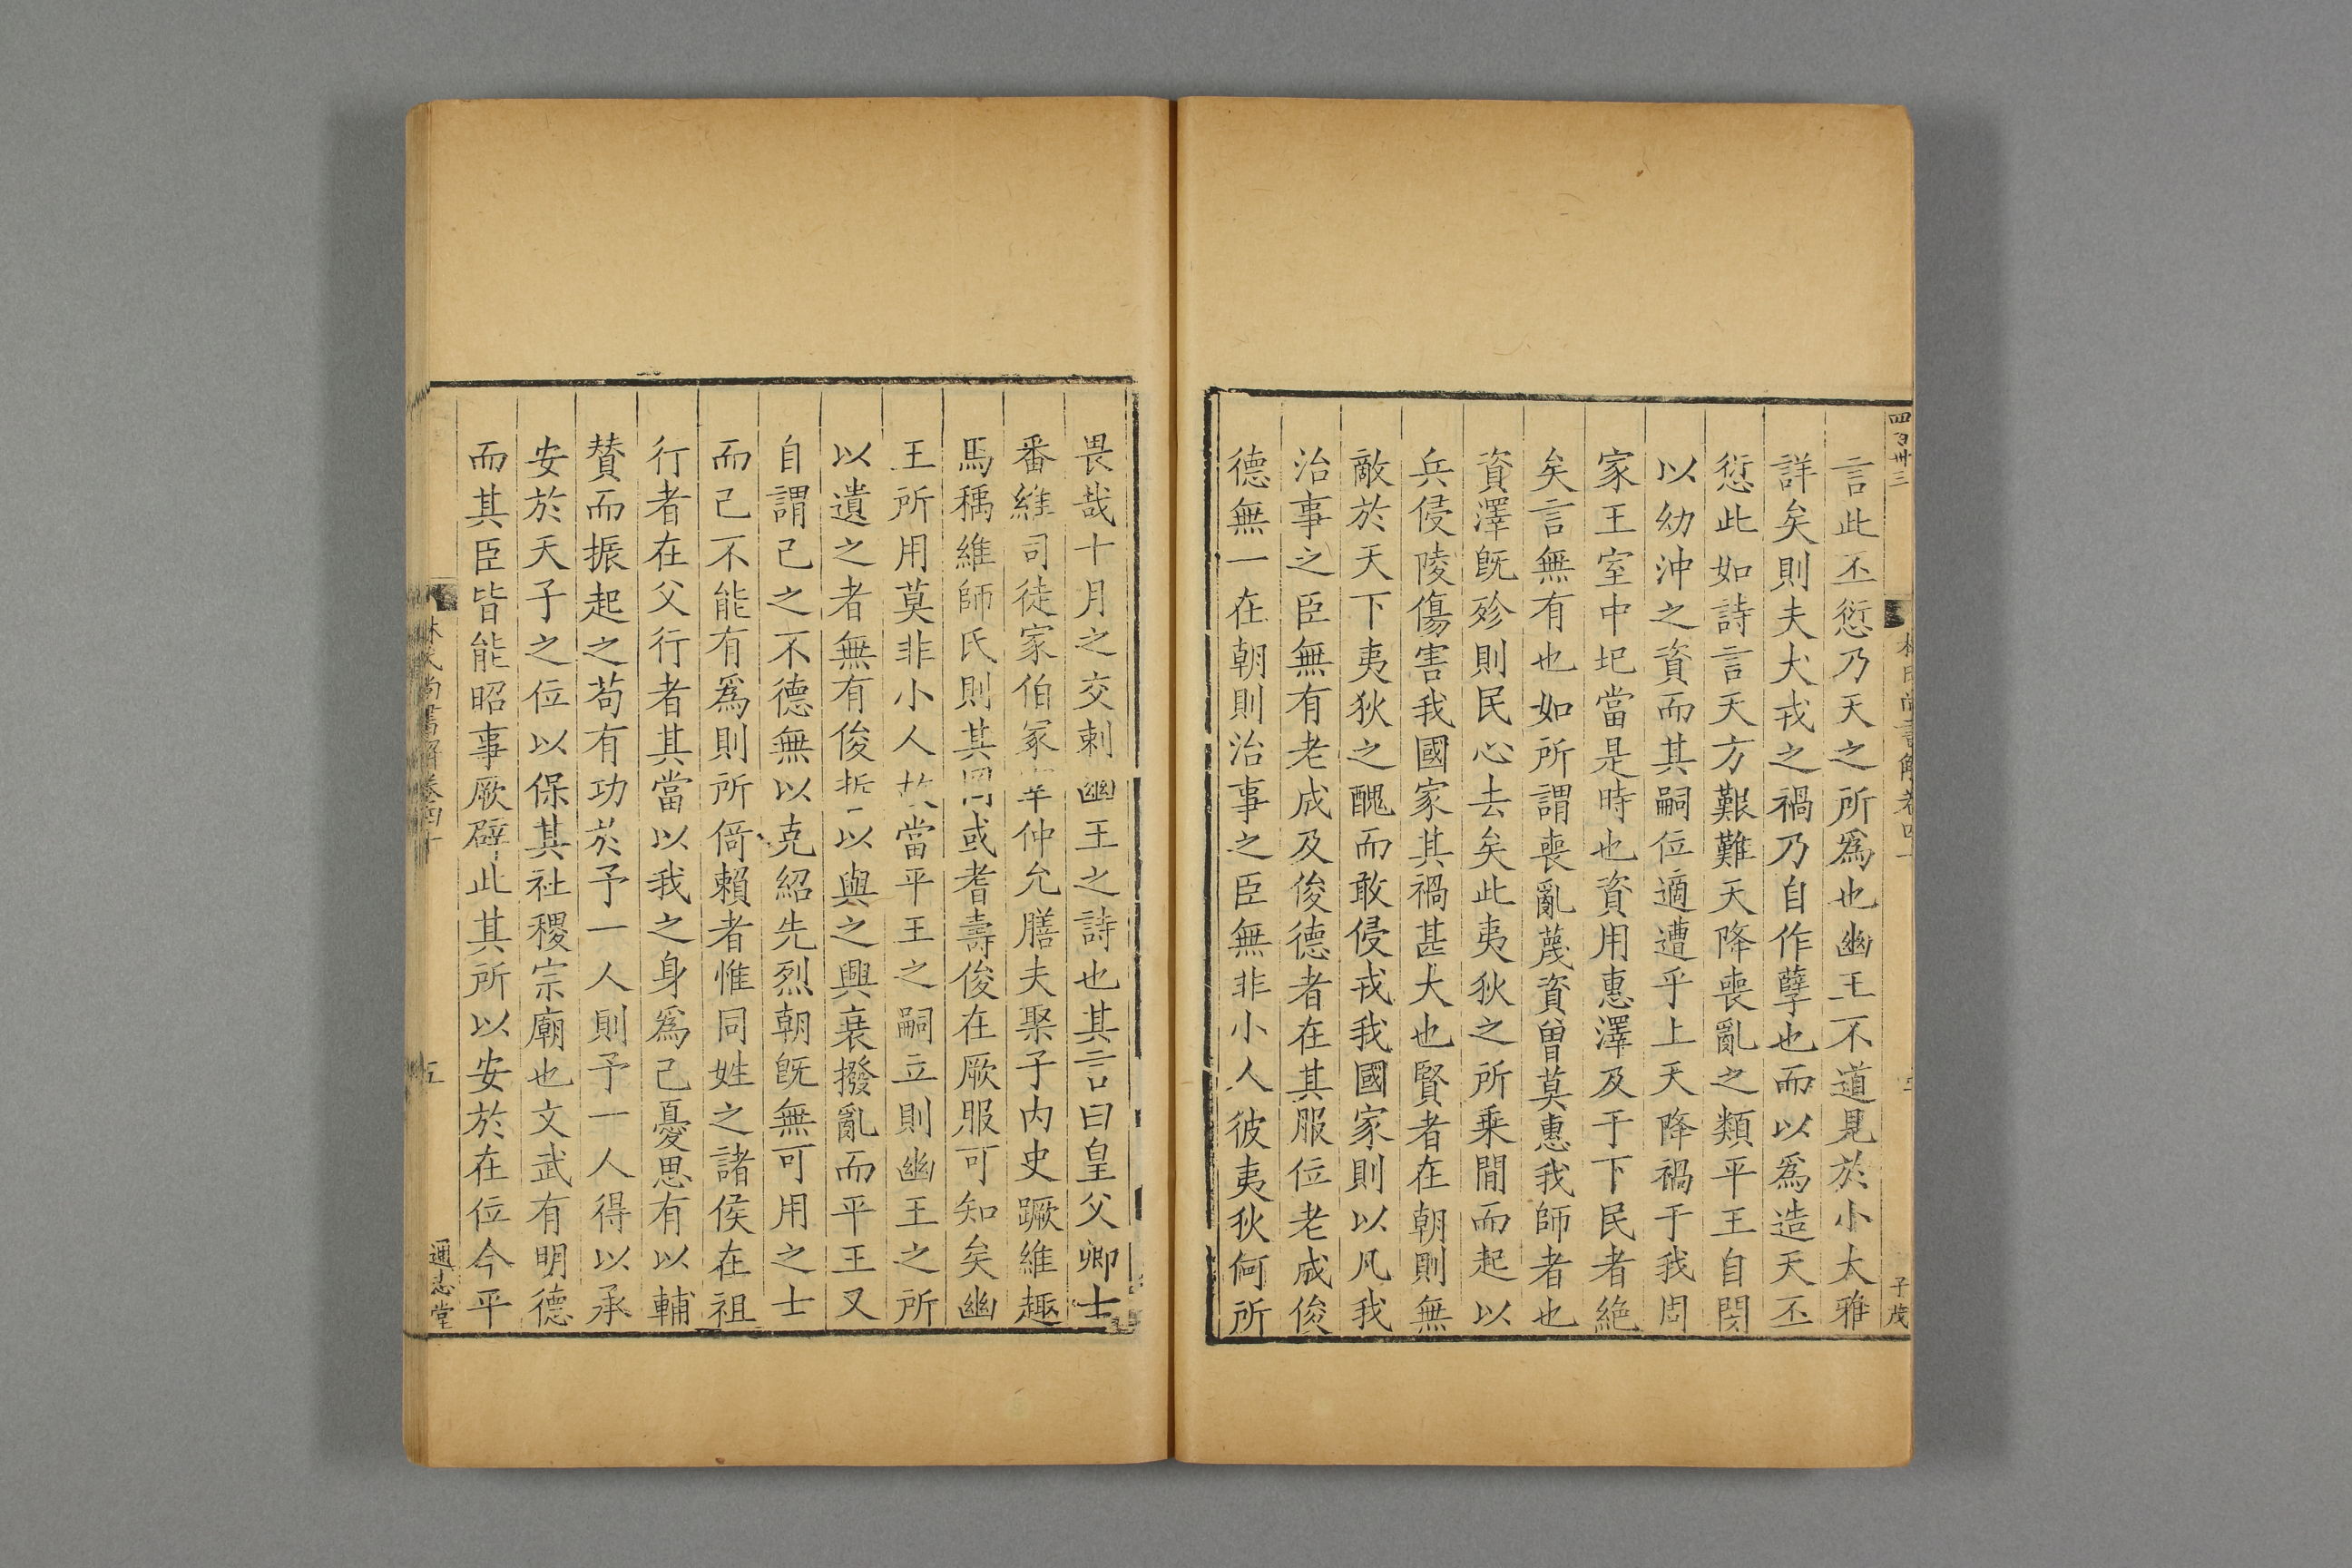 四百卅三
子茂
言此丕愆乃天之所爲也幽王不道見於小大雅
詳矣則夫犬戎之禍乃自作孽也而以爲造天丕
愆此如詩言天方艱難天降喪亂之類平王自閔
以幼沖之資而其嗣位適遭乎上天降禍于我周
家王室中圮當是時也資用惠澤及于下民者絶
矣言無有也如所謂喪亂蔑資曾莫惠我師者也
資澤旣殄則民心去矣此夷狄之所乗閒而起以
兵侵陵傷害我國家其禍甚大也賢者在朝則無
敵於天下夷狄之醜而敢侵戎我國家則以凡我
治事之臣無有老成及俊德者在其服位老成俊
德無一在朝則治事之臣無非小人彼夷狄何所
畏哉十月之交刺幽王之詩也其言曰皇父卿士
番維司徒家伯冢宰仲允膳夫聚子内史蹶維趣
馬楀維師氏則其罔或耆壽俊在厥服可知矣幽
王所用莫非小人故當平王之嗣立則幽王之所
以遺之者無有俊哲以與之興衰撥亂而平王又
自謂己之不德無以克紹先烈朝旣無可用之士
而己不能有爲則所倚賴者惟同姓之諸侯在祖
行者在父行者其當以我之身爲己憂思有以輔
賛而振起之苟有功於予一人則予一人得以承
安於天子之位以保其社稷宗廟也文武有明德
而其臣皆能昭事厥辟此其所以安於在位今平
林氏尚書解卷四十
五
通志堂